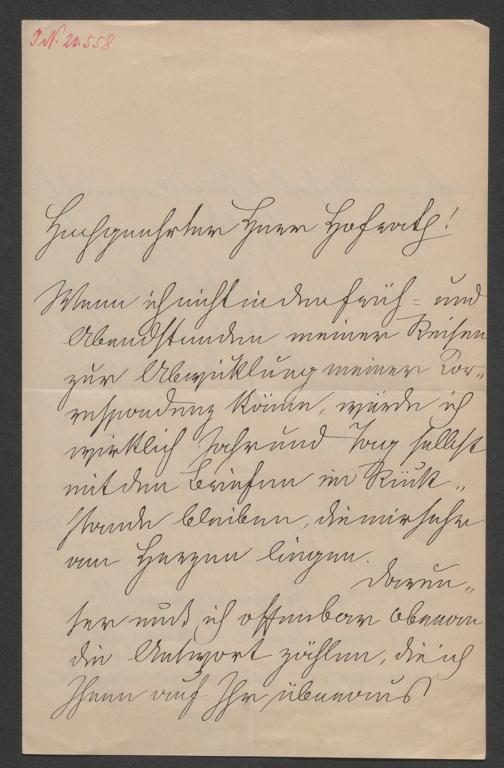 J.N. 20.558
Hochgeehrter Herr Hofrath!
Wenn ich nicht in den Früh- und
Abendstunden meiner Reisen
zur Abwicklung meiner Cor-
respondenz käme, würde ich
wirklich Jahr und Tag selbst
mit den Briefen im Rück-
stande bleiben, die mir sehr
am Herzen liegen.
Darun-
ter muß ich offenbar obenan
die Antwort zählen, die ich
Ihnen auf Ihr überaus